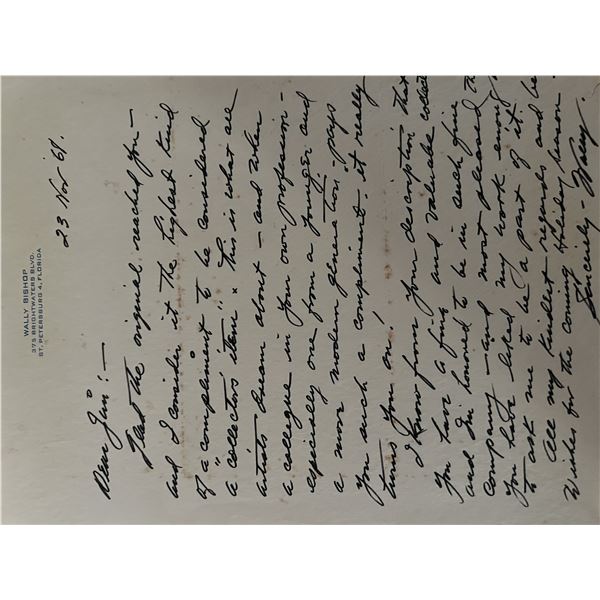 WALLY BISHOP
375 BRIGHTWATERS BLVD.
ST. PETERSBURG 4, FLORIDA
23 Nov 64.
Dear Jim:—
Glad the original reached you—
and I consider it the highest kind
of "a compliment" to be considered
a "collectors item". This is what all
artists dream about — and when
a collegue in your own profession —
especially one from a younger and
a more modern generation — pays
you such a compliment, it really
turns you on!
I know from your description that
you have a fine and valuable collect
and I'm honored to be in such fine
company — and most pleased th
you have liked my work enoug
to ask me to be a part of it.
All my kindest regards and be
Wishes for the coming Holiday season.
Sincerely — Wally.